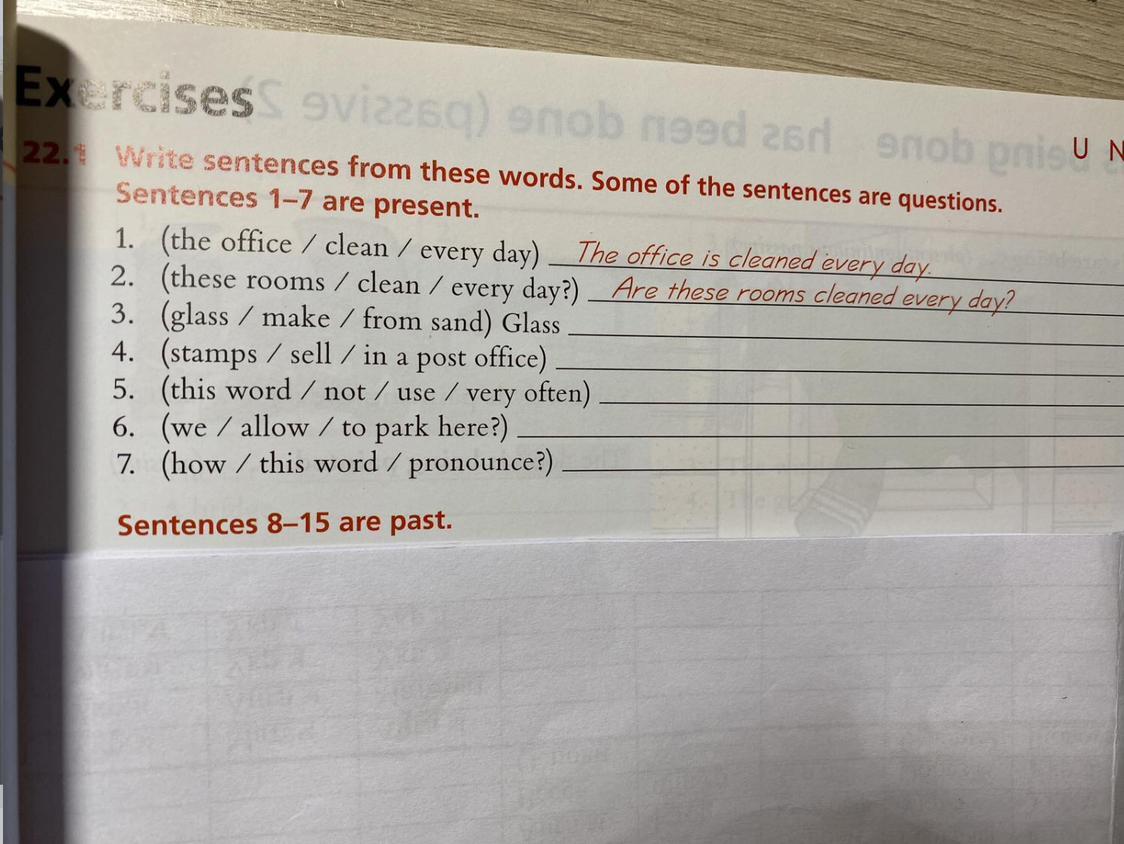 Exercises
U N
22.1 Write sentences from these words. Some of the sentences are questions.
Sentences 1–7 are present.
1. (the office / clean / every day) The office is cleaned every day.
2. (these rooms / clean / every day?) Are these rooms cleaned every day?
3. (glass / make / from sand) Glass
4. (stamps / sell / in a post office)
5. (this word / not / use / very often)
6. (we / allow / to park here?)
7. (how / this word / pronounce?)
Sentences 8–15 are past.